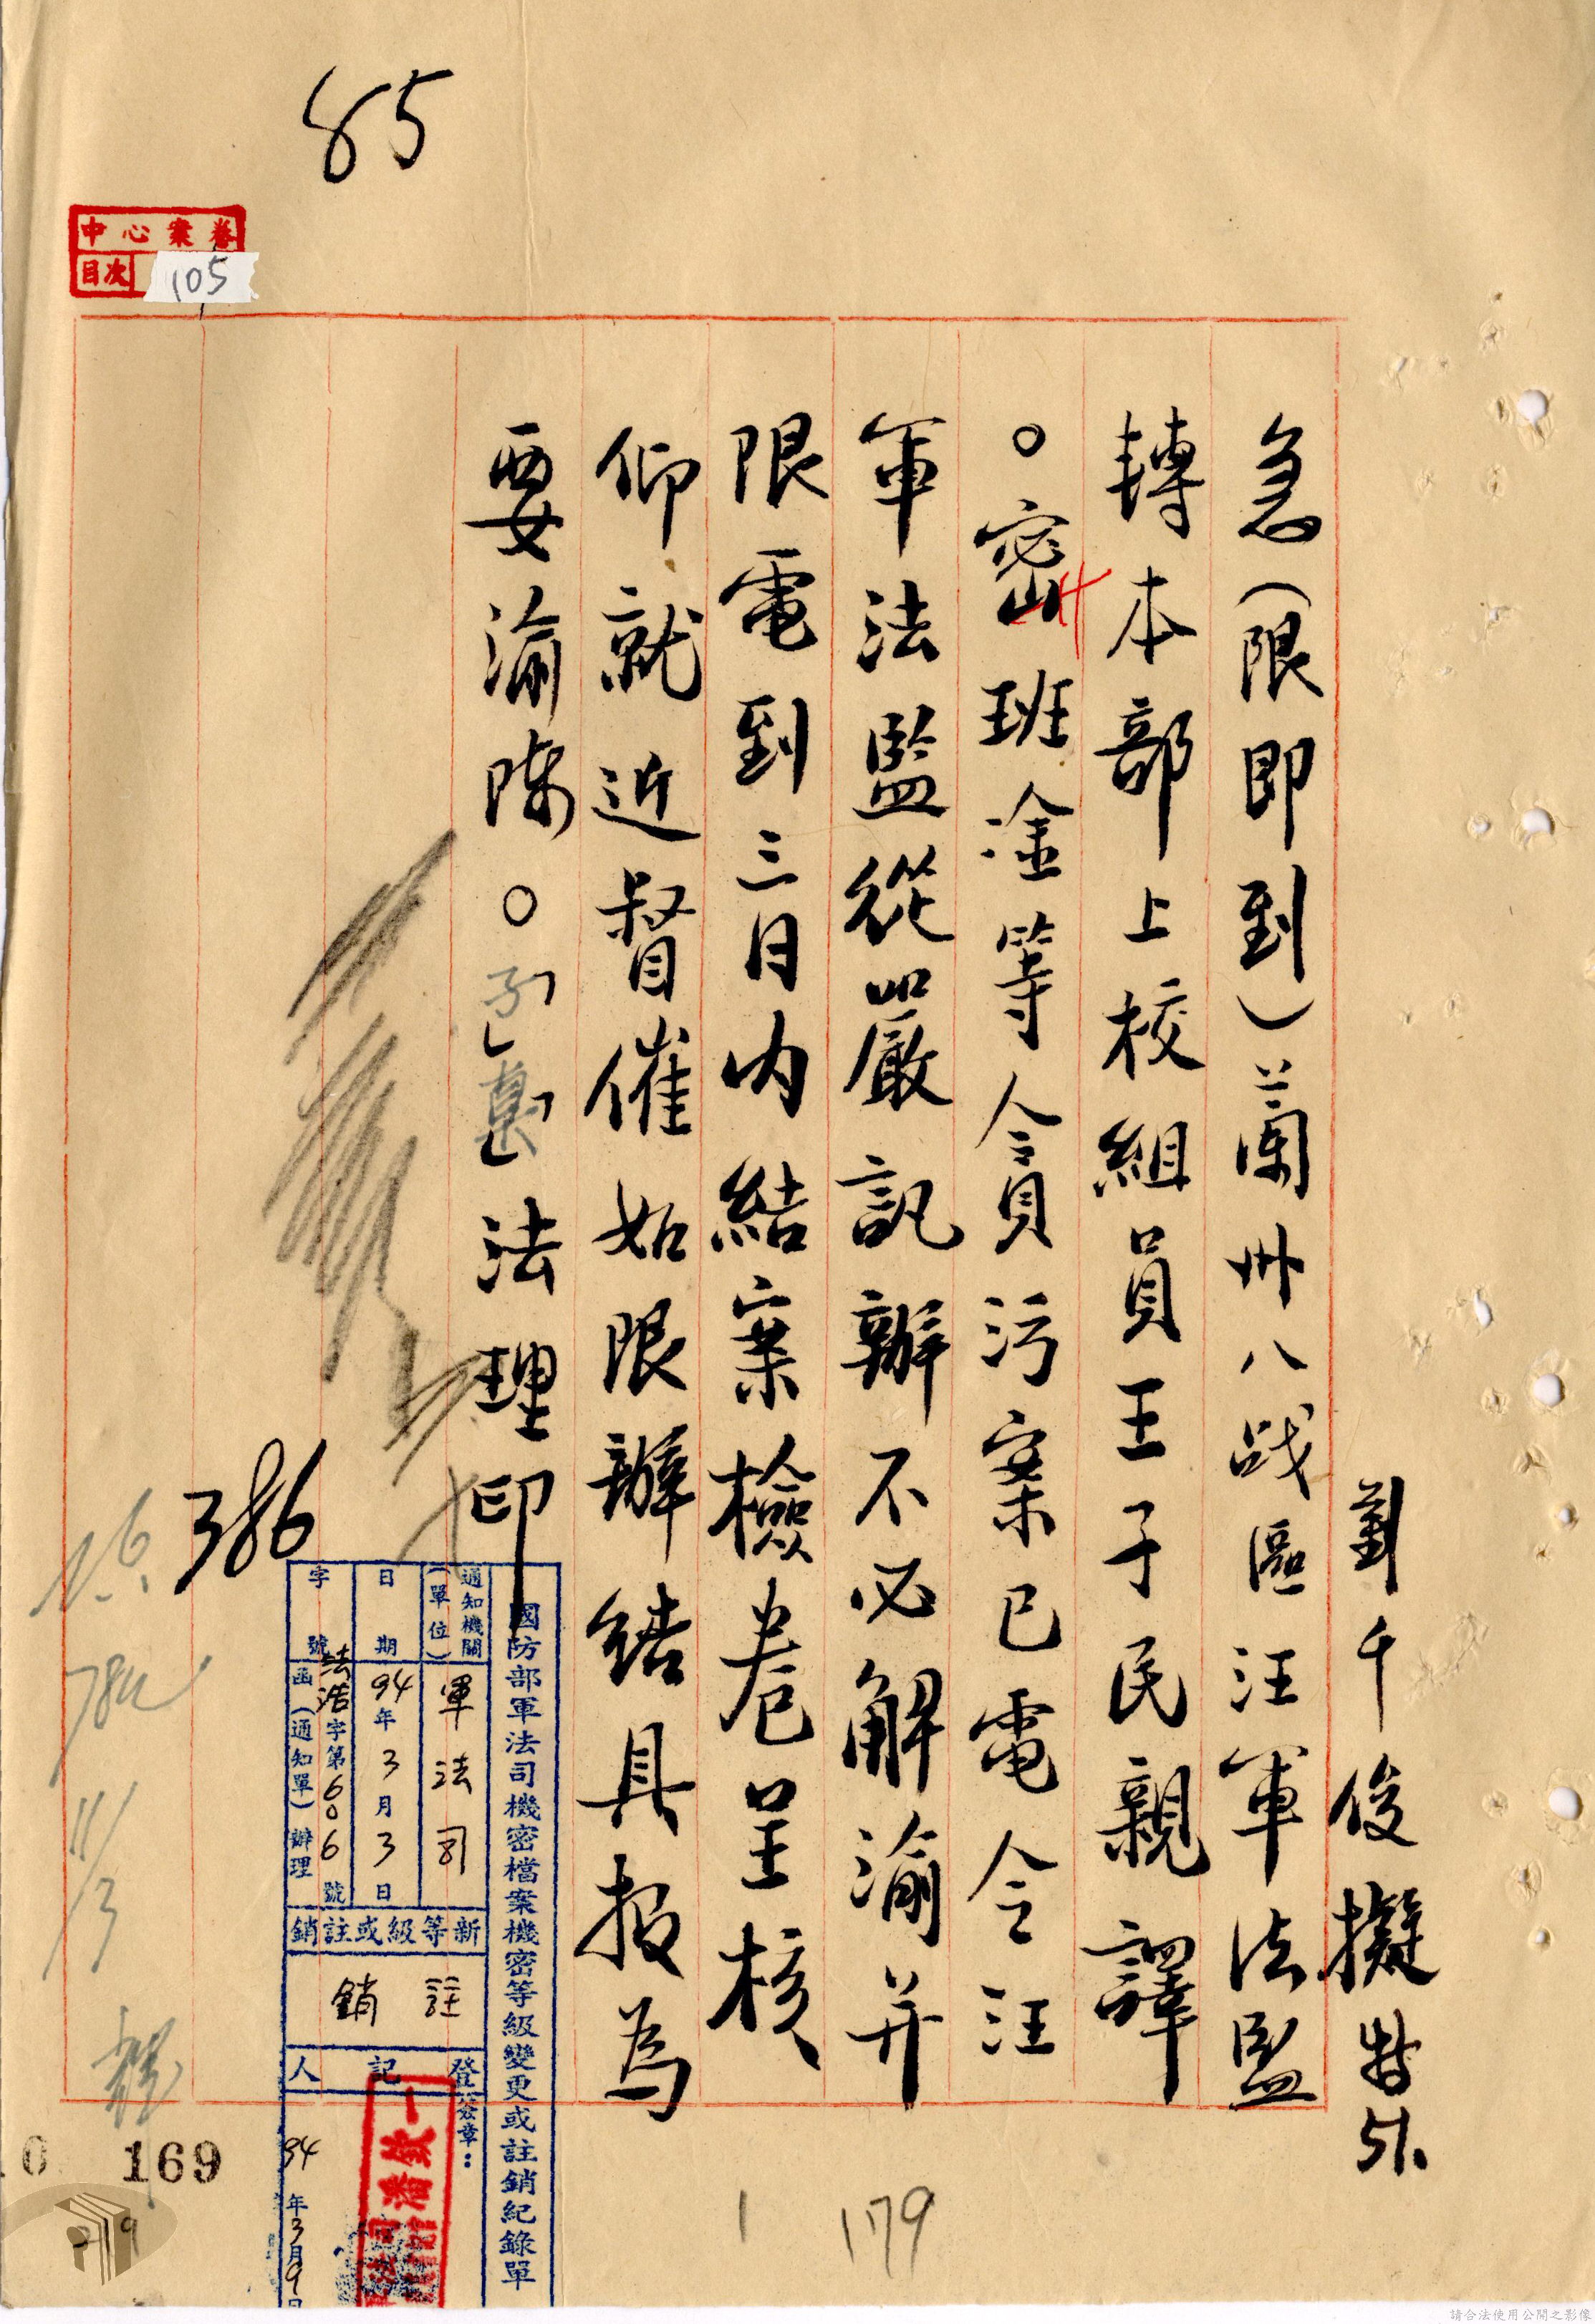 85
中心案卷
目次 105
劉千俊擬 特51
急（限即到）蘭州八战區汪軍法監
轉本部上校組員王子民親譯
○密班淦等令員污案已電令汪
軍法監從嚴訊辦不必解渝并
限電到三日内結案檢卷呈核
仰就近督催如限辦結具报為
要渝陳○子法理印
386
國防部軍法司機密檔案機密等級變更或註銷紀錄單
通知機關（單位）
軍法司
日期
94年3月3日
字號
法浩字第606號
函（通知單）辦理
新等級或註銷
註銷
登記人
簽章：
94年3月9日
11/3
169
1
179
219
請合法使用公開之影像